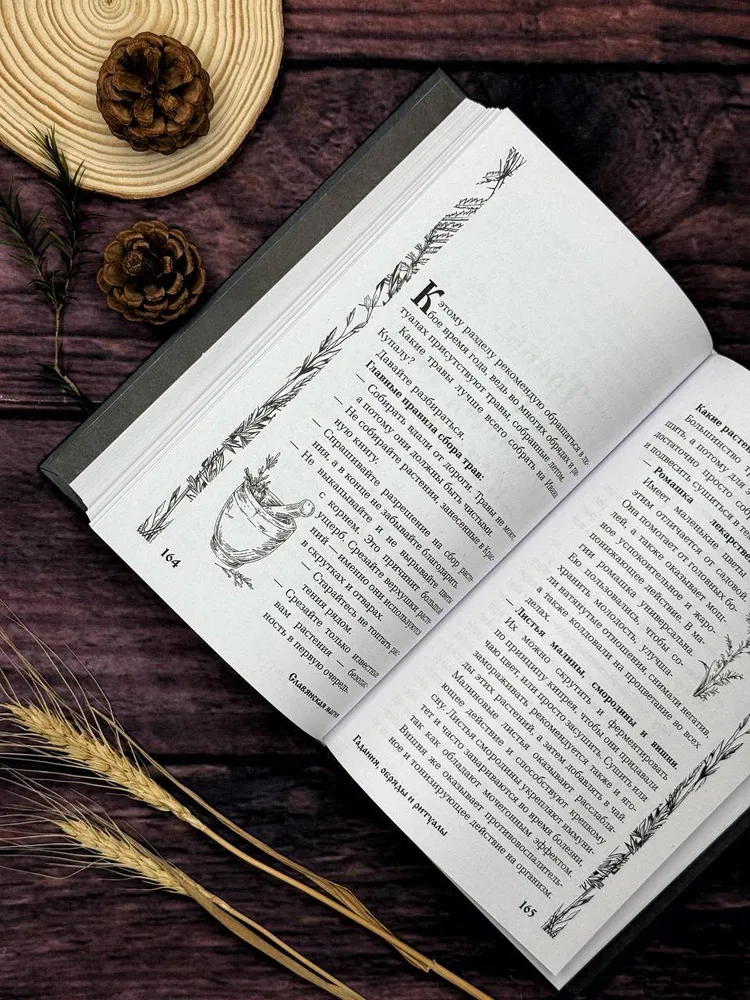 К этому разделу рекомендую обращаться в лю-
бое время года, ведь во многих обрядах и ри-
туалах присутствуют травы, собранные летом.
Какие травы лучше всего собрать на Ивана
Купалу?
Давайте разбираться.
Главные правила сбора трав:
— Собирать вдали от дороги. Травы не моют,
а потому они должны быть чистыми.
— Не собирайте растения, занесенные в Крас-
ную книгу.
— Спрашивайте разрешение на сбор расте-
ния, а в конце не забывайте благодарить.
— Не выкапывайте и не вырывайте цветы
с корнем. Это причинит больший
ущерб. Срезайте верхушки расте-
ний — именно они используются
в скрутках и отварах.
— Старайтесь не топтать рас-
тения рядом.
— Срезайте только известные
вам растения — безопас-
ность в первую очередь.
164
Славянская маги
Какие расте
Большинство
шить, а потому для
достаточно просто со
и подвесить сушиться в те
— Ромашка лекарств
Имеет маленькие цветы
этим отличается от садовой
Она помогает от головных бо-
лей, а также оказывает мощ-
ное успокоительное и жаро-
понижающее действие. В ма-
гии ромашка универсальна.
Ею пользовались, чтобы со-
хранить молодость, улучша-
ли натянутые отношения, снимали негатив,
а также колдовали на процветание во всех
делах.
— Листья малины, смородины и вишни.
Их можно скрутить и ферментировать
по принципу кипрея, чтобы они придавали
чаю цвет, или просто засушить. Сушить или
замораживать рекомендуется также и яго-
ды этих растений, а затем добавлять в чай.
Малиновые листья оказывают расслабля-
ющее действие и способствуют крепкому
сну. Листья смородины укрепляют иммуни-
тет и часто завариваются во время болезни,
так как обладают мочегонным эффектом.
Вишня же оказывает противовоспалитель-
ное и тонизирующее действие на организм.
Гадания, обряды и ритуалы
165